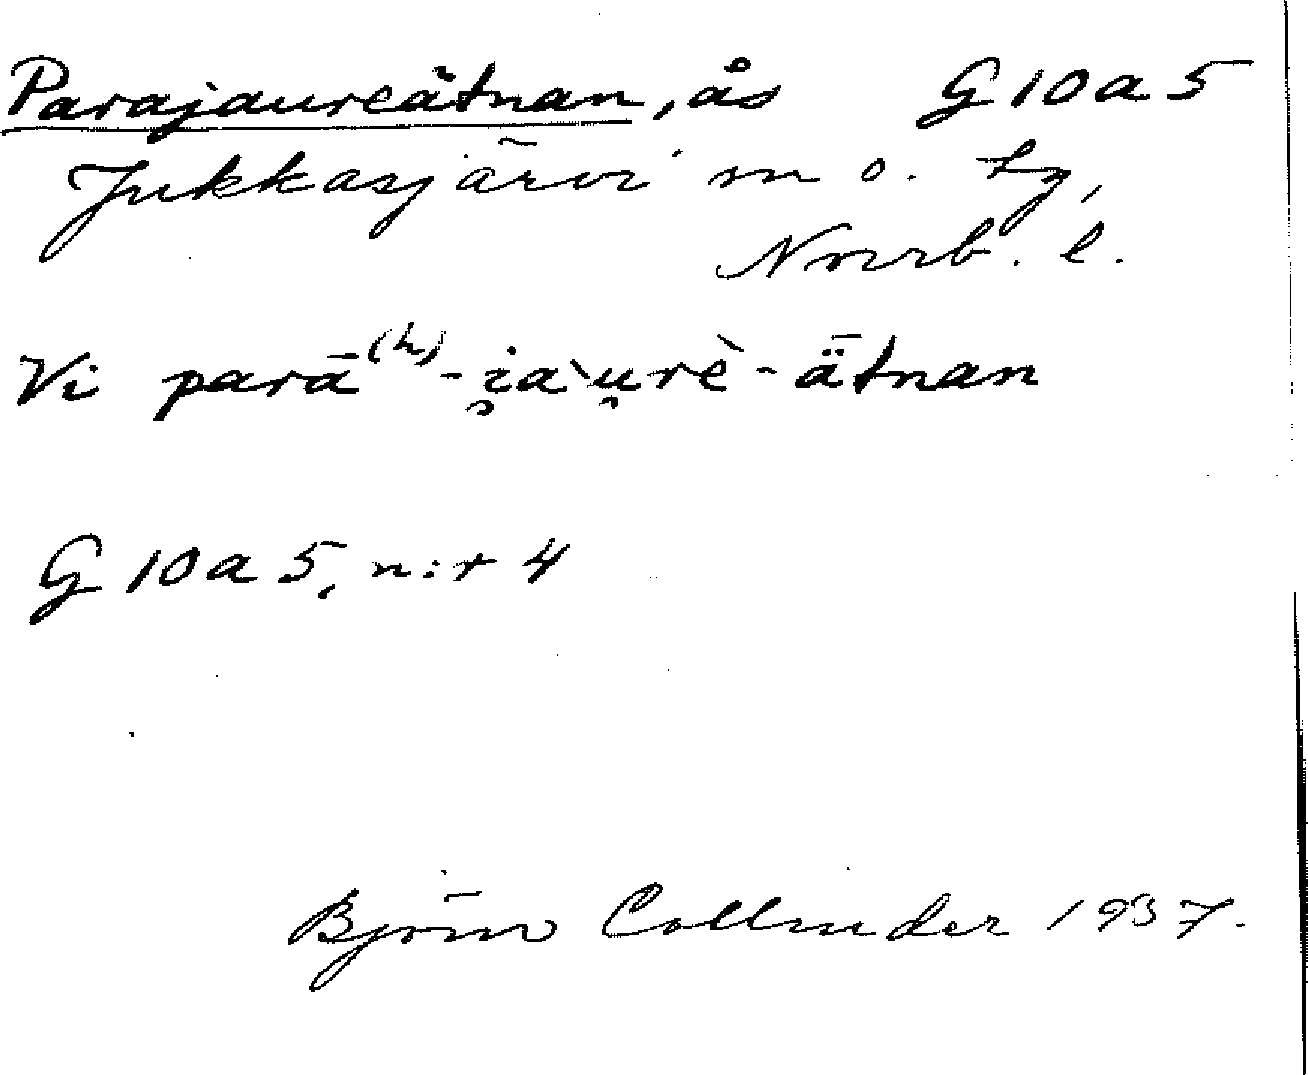 Parajaureätnan, ås G10a5
Jukkasjärvi sn o. tg,
Norrb. l.
Vi parā⁽ʰ⁾-i̯a`u̯rè-ǟtnan
G 10 a 5, n:r 4
Björn Collinder 1937.